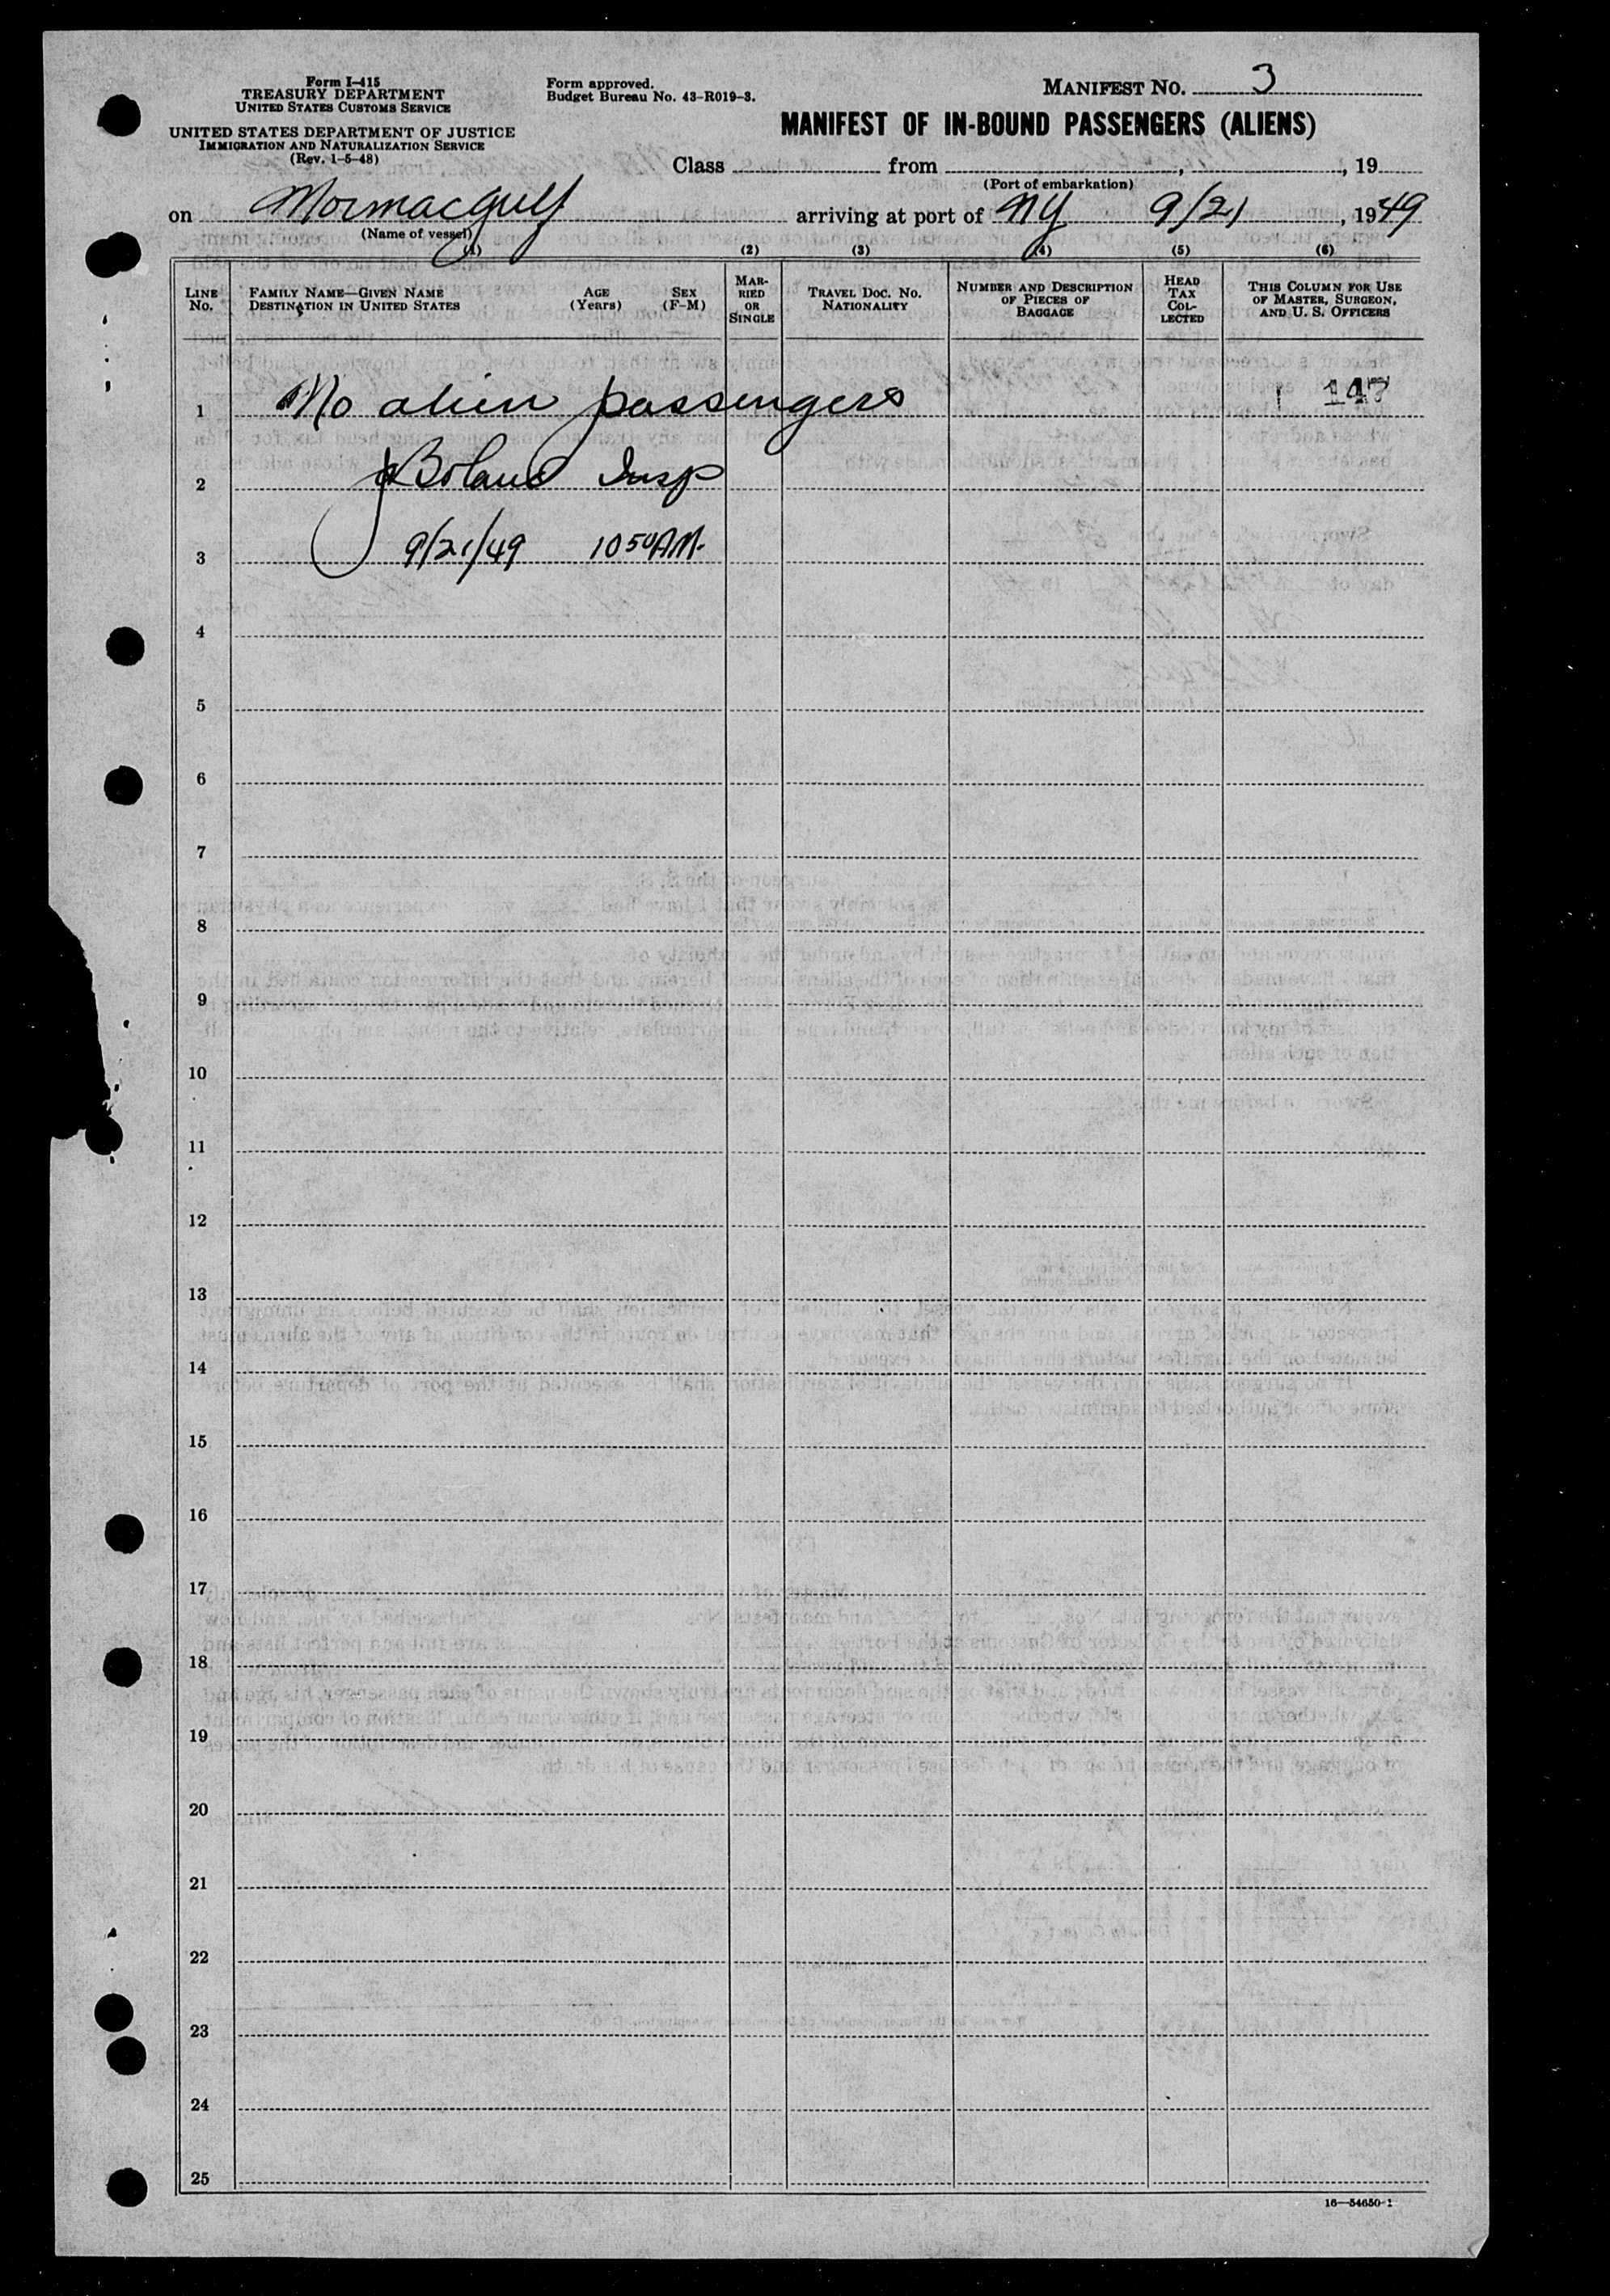 Form I-415
TREASURY DEPARTMENT
UNITED STATES CUSTOMS SERVICE
UNITED STATES DEPARTMENT OF JUSTICE
IMMIGRATION AND NATURALIZATION SERVICE
(Rev. 1-5-48)
Form approved.
Budget Bureau No. 43-R019-3.
MANIFEST NO. 3
MANIFEST OF IN-BOUND PASSENGERS (ALIENS)
Class from , , 19
(Port of embarkation)
on Mormacgulf arriving at port of NY 9/21, 1949
(Name of vessel)
(1) (2) (3) (4) (5) (6)
LINE No.
FAMILY NAME—GIVEN NAME
DESTINATION IN UNITED STATES
AGE (Years)
SEX (F-M)
MARRIED OR SINGLE
TRAVEL DOC. NO.
NATIONALITY
NUMBER AND DESCRIPTION OF PIECES OF BAGGAGE
HEAD TAX COLLECTED
THIS COLUMN FOR USE OF MASTER, SURGEON, AND U. S. OFFICERS
1 No alien passengers 147
2 Boland Insp
3 9/21/49 10 50 AM.
4
5
6
7
8
9
10
11
12
13
14
15
16
17
18
19
20
21
22
23
24
25
16—54650-1